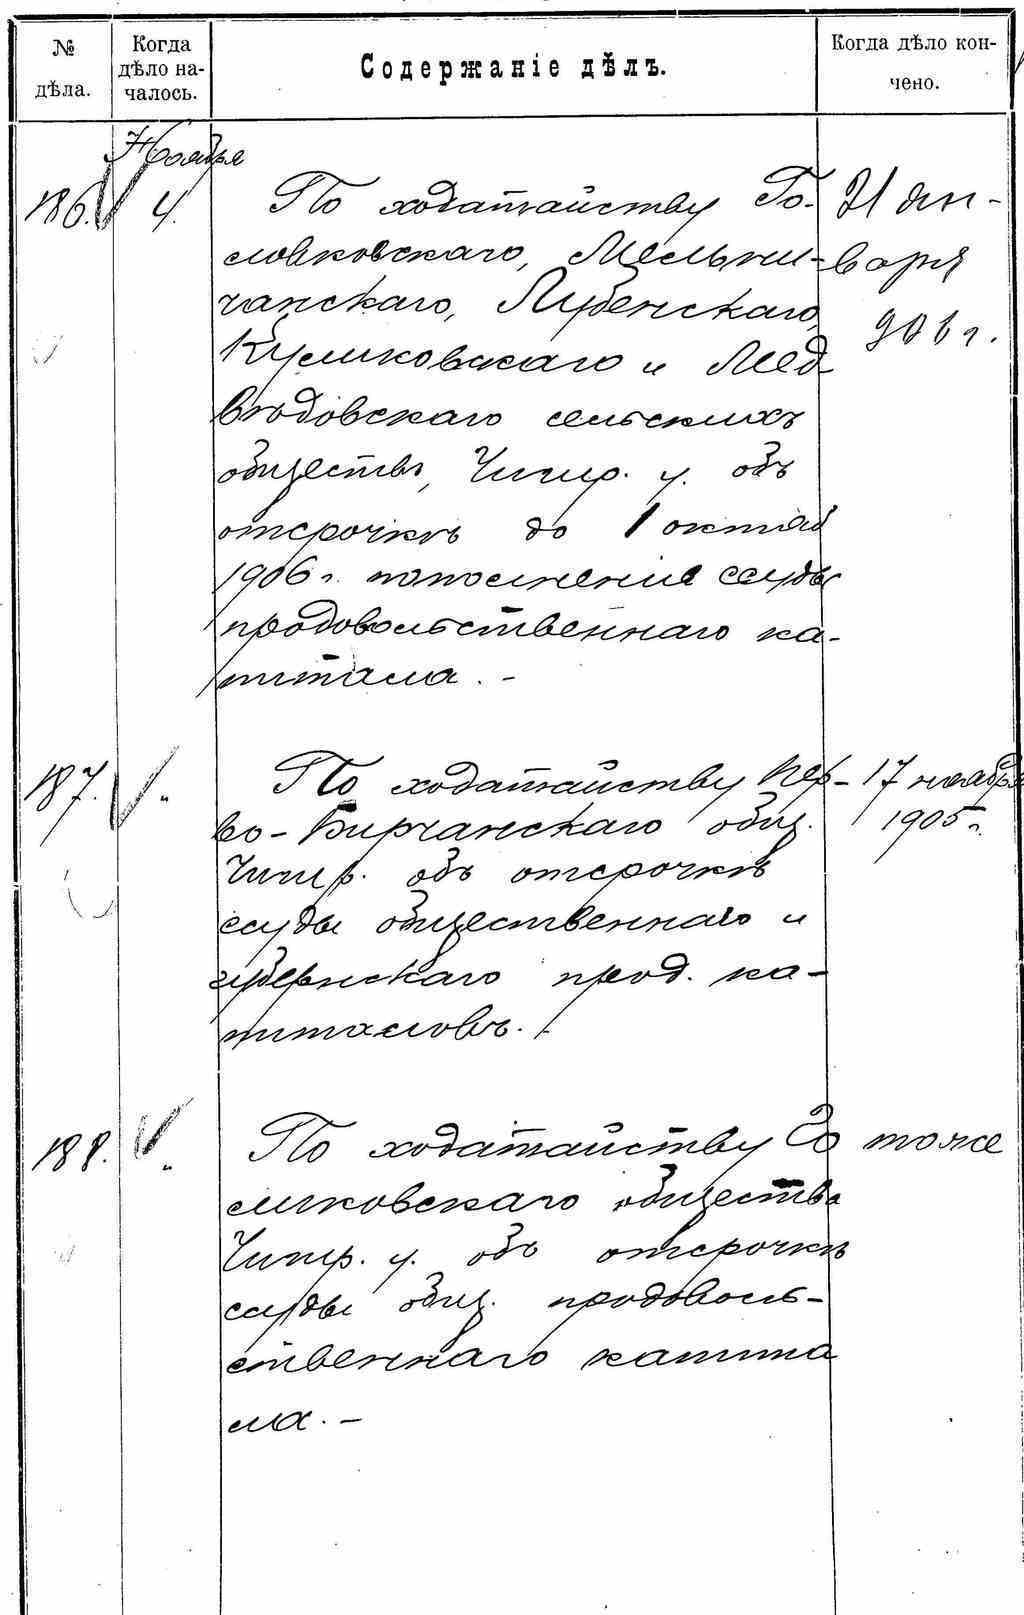 № дѣла.
Когда дѣло на-
чалось.
Содержаніе дѣлъ.
Когда дѣло кон-
чено.
Ноября
186. 4. По ходатайству Го- 21 ян-
ловковскаго, Мельни- варя
чанскаго, Лубенскаго, 906 г.
Куликовскаго и Мед-
вѣдовскаго сельскихъ
обществъ, Чигир. у. объ
отсрочкѣ до 1 октяб
1906 г. пополненія ссуды
продовольственнаго ка-
питала. -
187. " По ходатайству Пер- 17 ноября
во-Бирчанскаго общ. 1905 г.
Чигир. объ отсрочкѣ
ссуды общественнаго и
губернскаго прод. ка-
питаловъ.
188. " По ходатайству Го тоже
ликовскаго общества
Чигир. у. объ отсрочкѣ
ссуды общ. продоволь-
ственнаго капита
ла. -